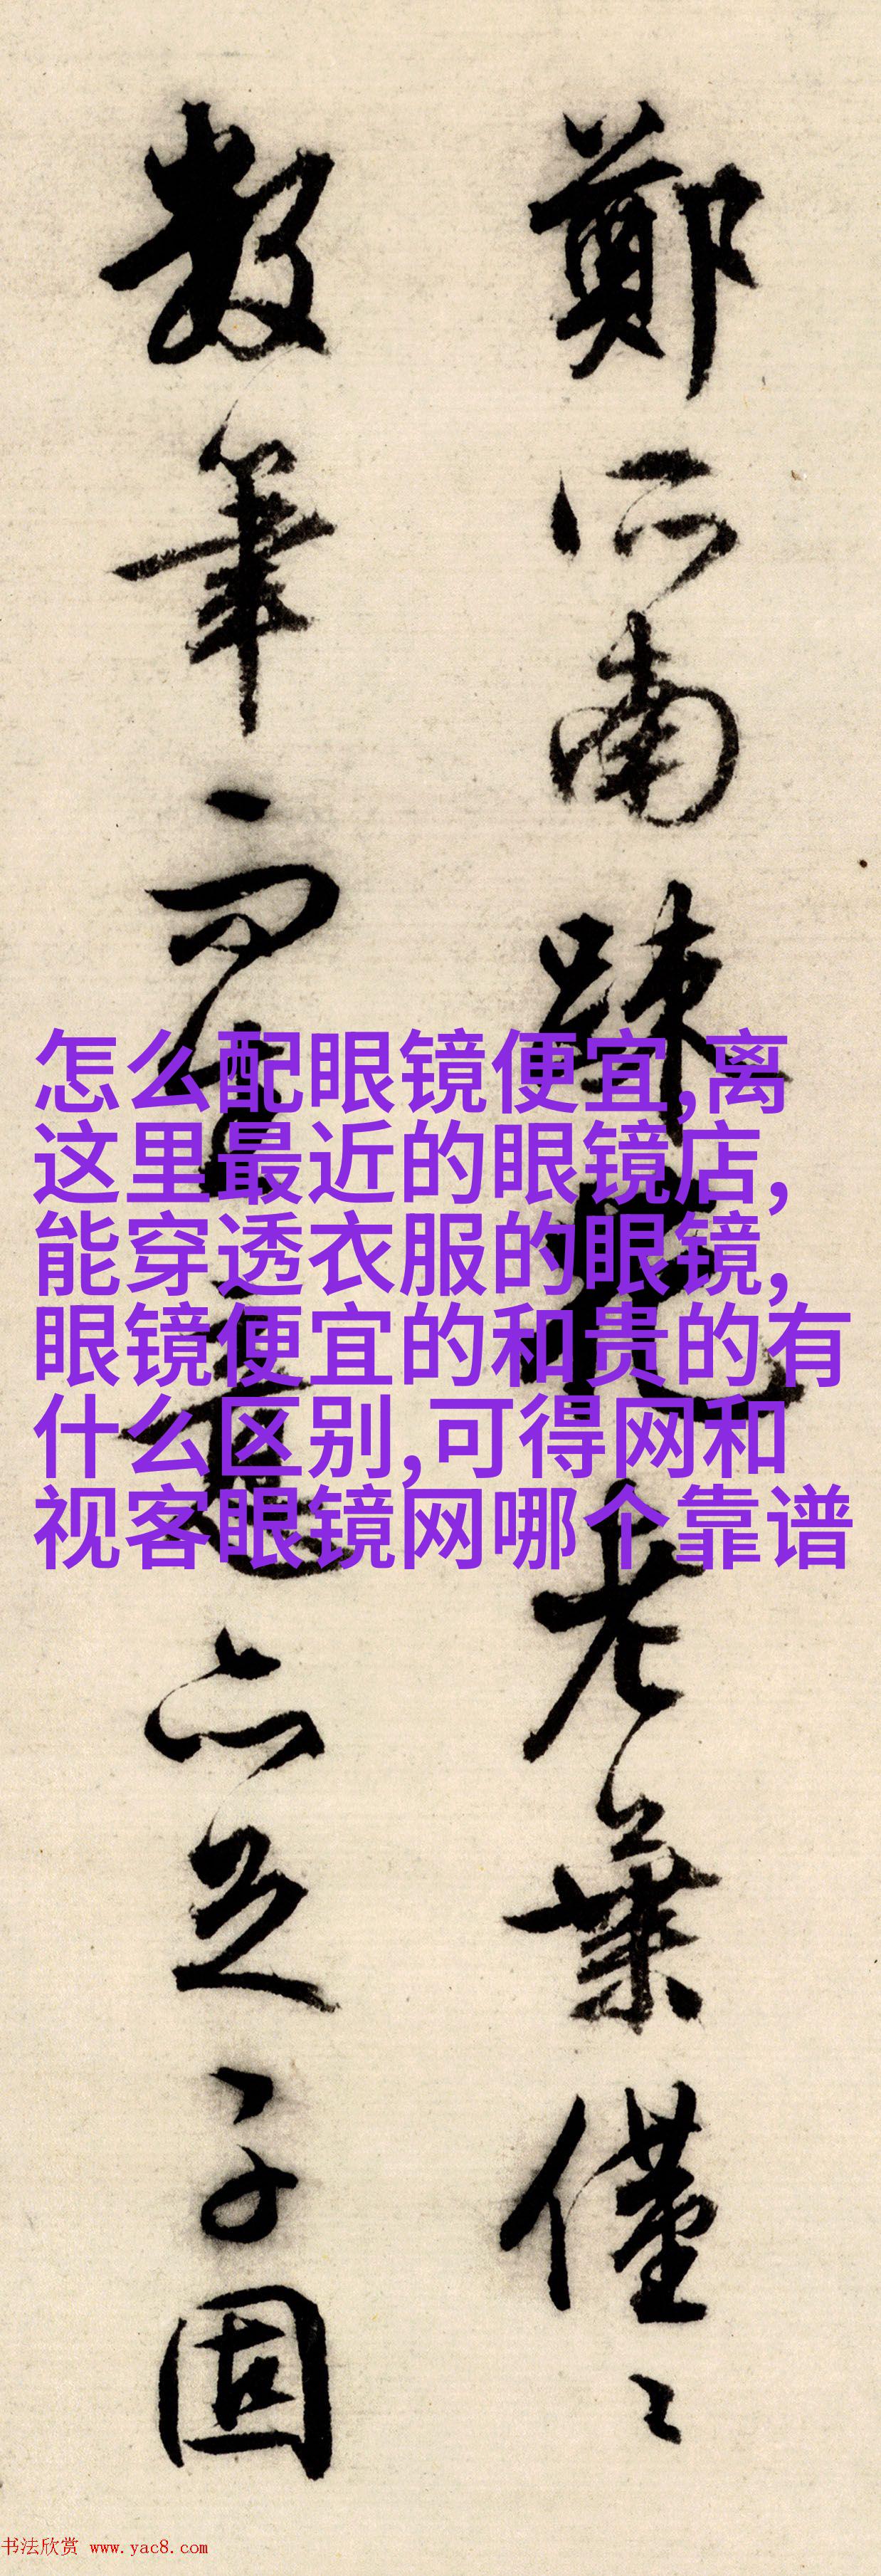 鄭所南踈花老葉僅〻
數筆而生意亦足子固
怎么配眼镜便宜,离
这里最近的眼镜店,
能穿透衣服的眼镜,
眼镜便宜的和贵的有
什么区别,可得网和
视客眼镜网哪个靠谱
书法欣赏 www.yac8.com